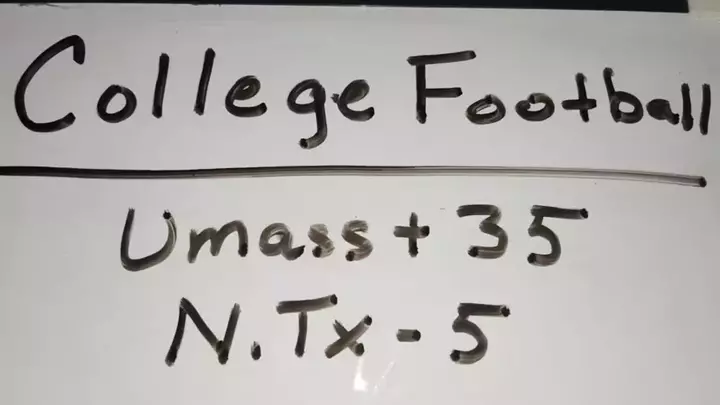 College Football
Umass + 35
N. Tx - 5